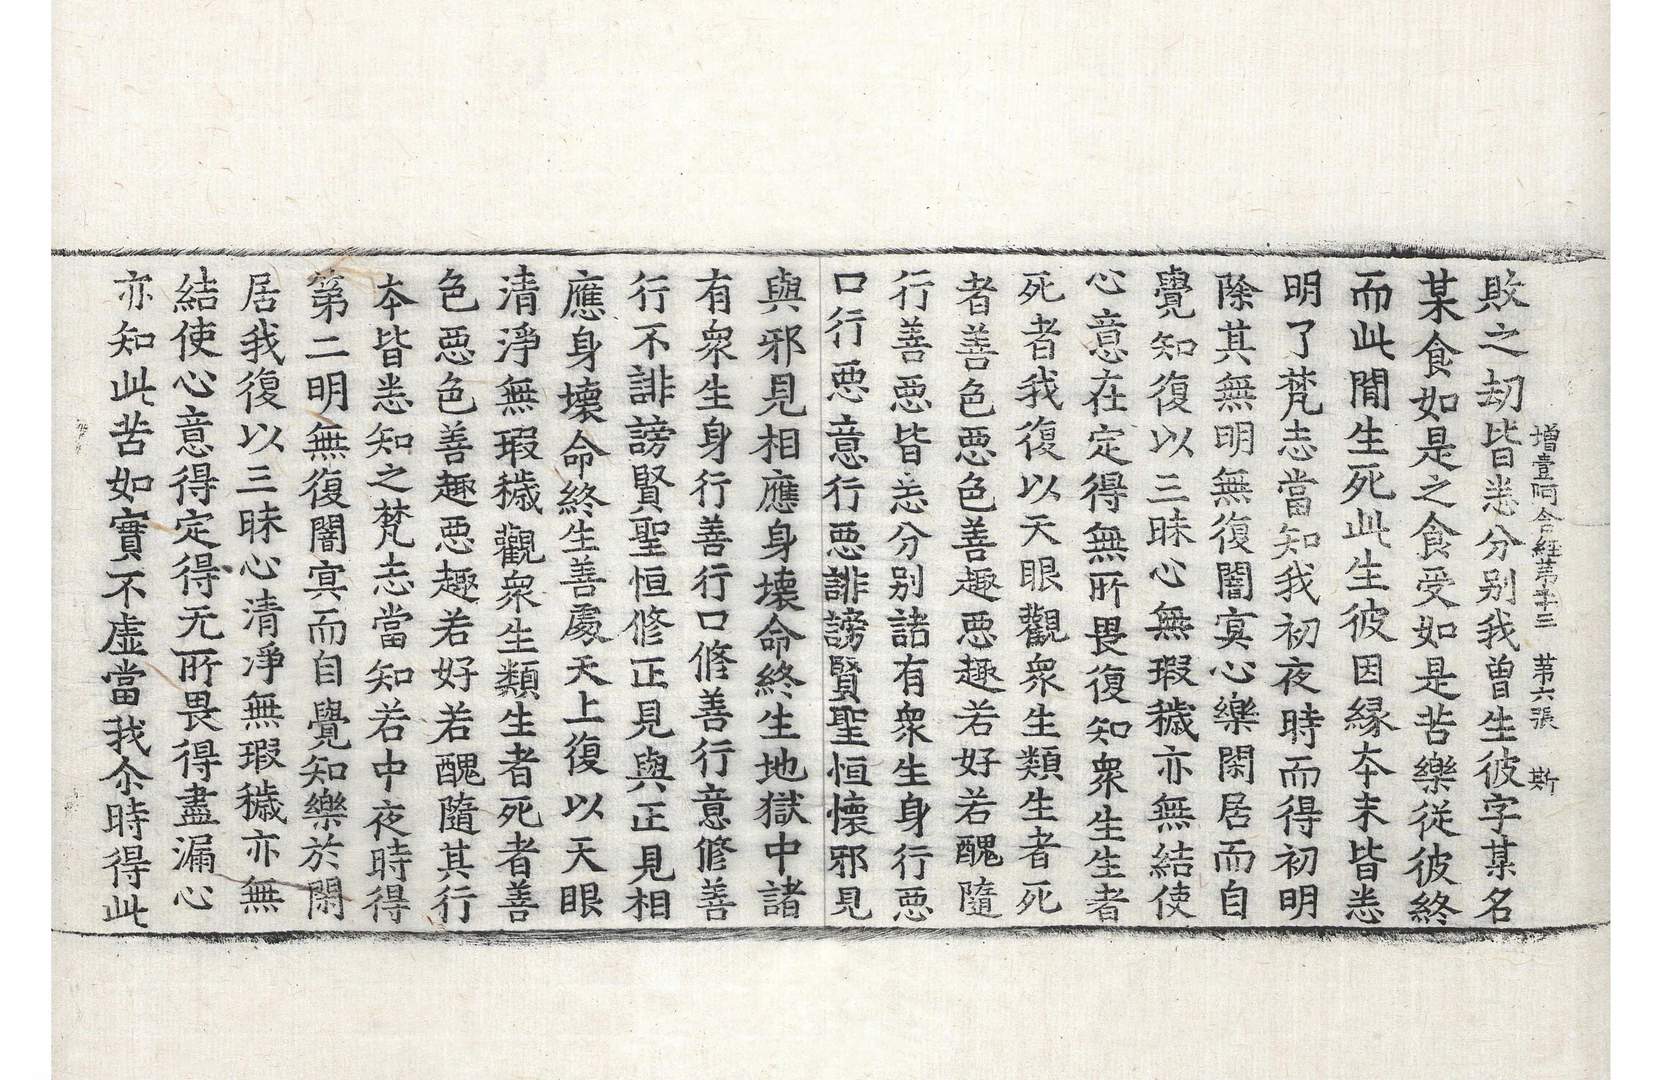 增壹阿含經苐二十三 苐六張 斯
敗之劫皆悉分别我曽生彼字某名
某食如是之食受如是苦樂從彼終
而此閒生死此生彼因緣本末皆悉
明了梵志當知我初夜時而得初明
除其無明無復闇冥心樂閑居而自
覺知復以三昧心無瑕穢亦無結使
心意在定得無所畏復知衆生生者
死者我復以天眼觀衆生類生者死
者善色惡色善趣惡趣若好若醜隨
行善惡皆悉分别諸有衆生身行惡
口行惡意行惡誹謗賢聖恒懷邪見
與邪見相應身壞命終生地獄中諸
有衆生身行善行口修善行意修善
行不誹謗賢聖恒修正見與正見相
應身壞命終生善處天上復以天眼
清淨無瑕穢觀衆生類生者死者善
色惡色善趣惡趣若好若醜隨其行
本皆悉知之梵志當知若中夜時得
第二明無復闇冥而自覺知樂於閑
居我復以三昧心清淨無瑕穢亦無
結使心意得定得无所畏得盡漏心
亦知此苦如實不虛當我尒時得此